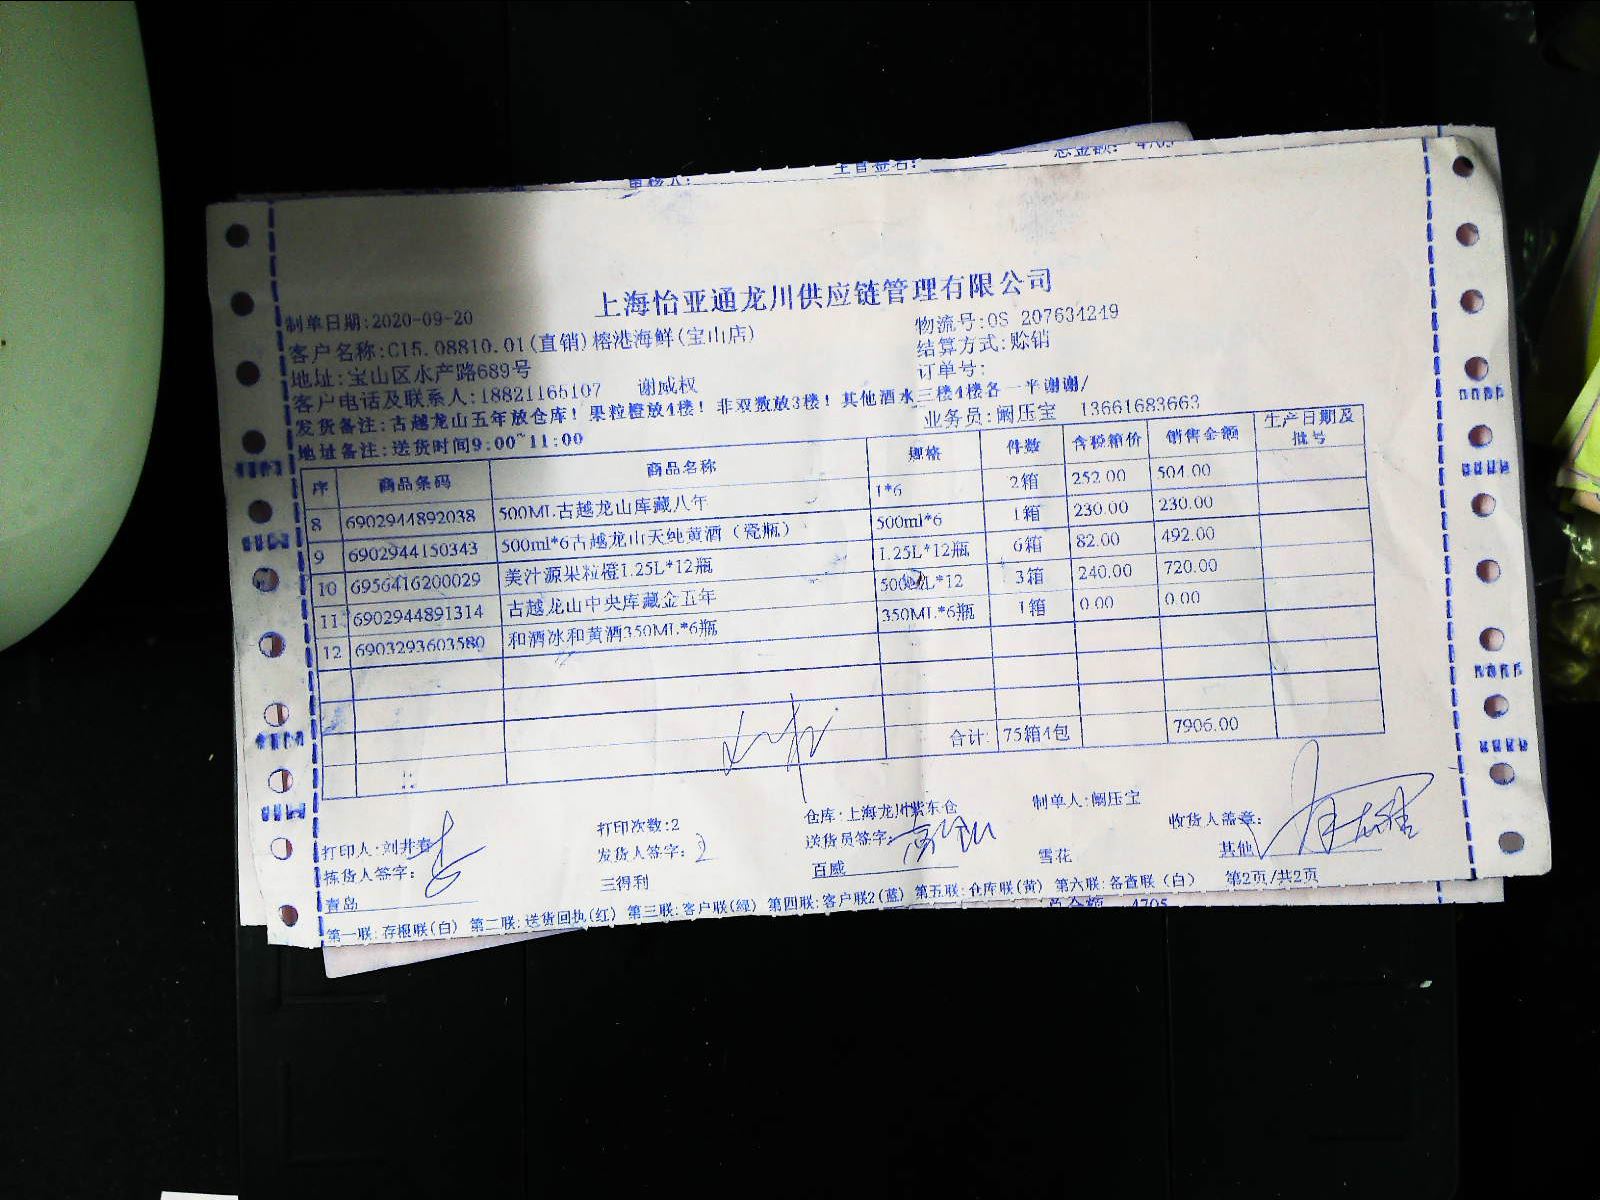 主管签名:
总金额: 4705
上海怡亚通龙川供应链管理有限公司
制单日期:2020-09-20
物流号:OS 207634249
客户名称:C15.08810.01(直销)榕港海鲜(宝山店)
结算方式:赊销
地址:宝山区水产路689号
订单号:
客户电话及联系人:18821165107 谢威权
发货备注:古越龙山五年放仓库!果粒橙放4楼!非双数放3楼!其他酒水三楼4楼各一平谢谢/
业务员:阚压宝 13661683663
地址备注:送货时间9:00~11:00
序 商品条码 商品名称 规格 件数 含税箱价 销售金额 生产日期及批号
8 6902944892038 500ML古越龙山库藏八年 1*6 2箱 252.00 504.00
9 6902944150343 500ml*6古越龙山天纯黄酒（瓷瓶） 500ml*6 1箱 230.00 230.00
10 6956416200029 美汁源果粒橙1.25L*12瓶 1.25L*12瓶 6箱 82.00 492.00
11 6902944891314 古越龙山中央库藏金五年 500ML*12 3箱 240.00 720.00
12 6903293603580 和酒冰和黄酒350ML*6瓶 350ML*6瓶 1箱 0.00 0.00
合计: 75箱4包 7906.00
仓库:上海龙川紫东仓 制单人:阚压宝
打印人:刘井春 打印次数:2 送货员签字: 收货人盖章:
拣货人签字: 发货人签字: 2 百威 雪花 其他
青岛 三得利
第一联:存根联(白) 第二联:送货回执(红) 第三联:客户联(绿) 第四联:客户联2(蓝) 第五联:仓库联(黄) 第六联:备查联(白) 第2页/共2页
总金额 4705